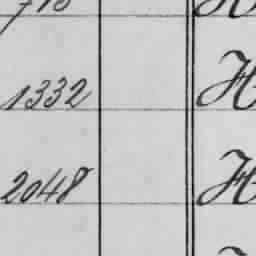 1332 H
2048 H